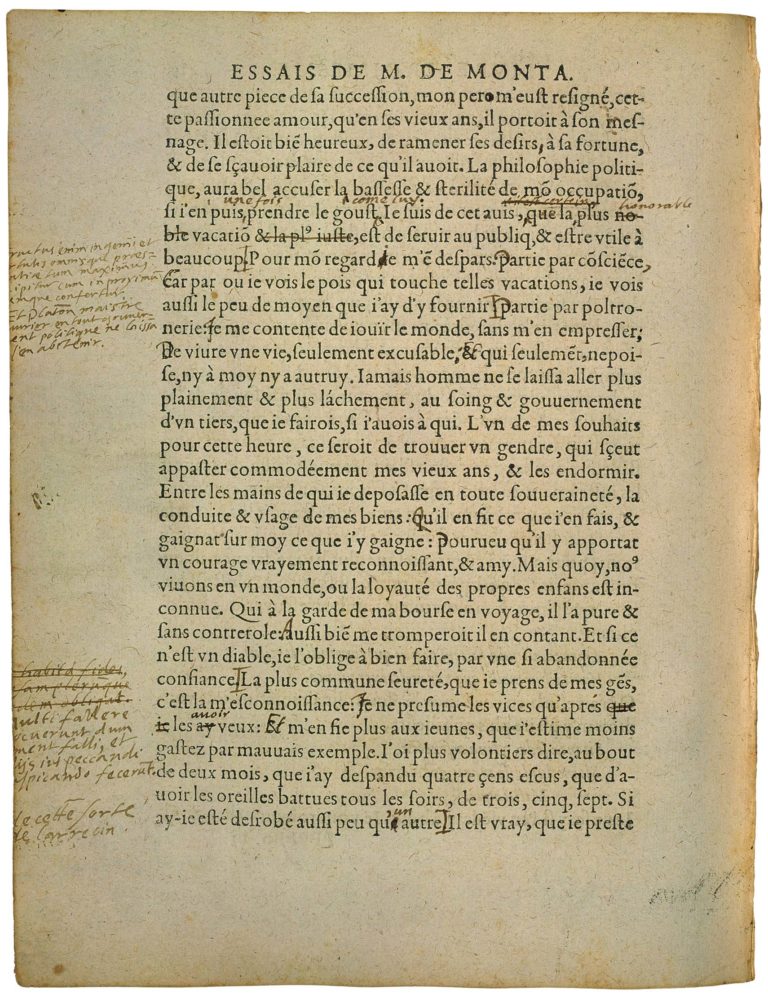 ESSAIS DE M. DE MONTA.
que autre piece de sa succession, mon pere m'eust resigné, cet-
te passionnee amour, qu'en ses vieux ans, il portoit à son mes-
nage. Il estoit biē heureux, de ramener ses desirs, à sa fortune,
& de se sçauoir plaire de ce qu'il auoit. La philosophie politi-
que, aura bel accuser la bassesse & sterilité de mō occupatiō,
une fois come luy. honorable
si i'en puis, prendre le goust, Ie suis de cet auis, que la plus no-
ble vacatiō & la plꝰ iuste, est de seruir au publiq, & estre vtile à
beaucoup. Pour mō regard ie m'ē despars: Partie par cōsciēce,
Car par ou ie vois le pois qui touche telles vacations, ie vois
aussi le peu de moyen que i'ay d'y fournir. Partie par poltro-
nerie: Ie me contente de iouïr le monde, sans m'en empresser;
De viure vne vie, seulement excusable, & qui seulemēt, ne poi-
se, ny à moy ny a autruy. Iamais homme ne se laissa aller plus
plainement & plus láchement, au soing & gouuernement
d'vn tiers, que ie fairois, si i'auois à qui. L'vn de mes souhaits
pour cette heure, ce seroit de trouuer vn gendre, qui sçeut
appaster commodéement mes vieux ans, & les endormir.
Entre les mains de qui ie deposasse en toute souueraineté, la
conduite & vsage de mes biens: Qu'il en fit ce que i'en fais, &
gaignat sur moy ce que i'y gaigne: Pourueu qu'il y apportat
vn courage vrayement reconnoissant, & amy. Mais quoy, noꝰ
viuons en vn monde, ou la loyauté des propres enfans est in-
connue. Qui à la garde de ma bourse en voyage, il l'a pure &
sans contrerole: Aussi biē me tromperoit il en contant. Et si ce
n'est vn diable, ie l'oblige à bien faire, par vne si abandonnée
confiance. La plus commune seureté, que ie prens de mes gēs,
c'est la m'esconnoissance: Ie ne presume les vices qu'aprés que
avoir
ie les ay veux: Et m'en fie plus aux ieunes, que i'estime moins
gastez par mauuais exemple. I'oi plus volontiers dire, au bout
de deux mois, que i'ay despandu quatre çens escus, que d'a-
uoir les oreilles battues tous les soirs, de trois, cinq, sept. Si
un
ay-ie esté desrobé aussi peu qu'autre. Il est vray, que ie preste
ructus enim ingenii et
omnisque præs-
antiæ tum maximus
ipitur cum in proximum
mque confertur
Et Platon maistre
ouvrier en tout
ent politique ne laissa
s'en abstenir.
habita fides
ulti fallere
cuerunt dum
ment falli, et
ijs ius peccandi
spicando fecerunt.
de cette sorte
de larrecin.